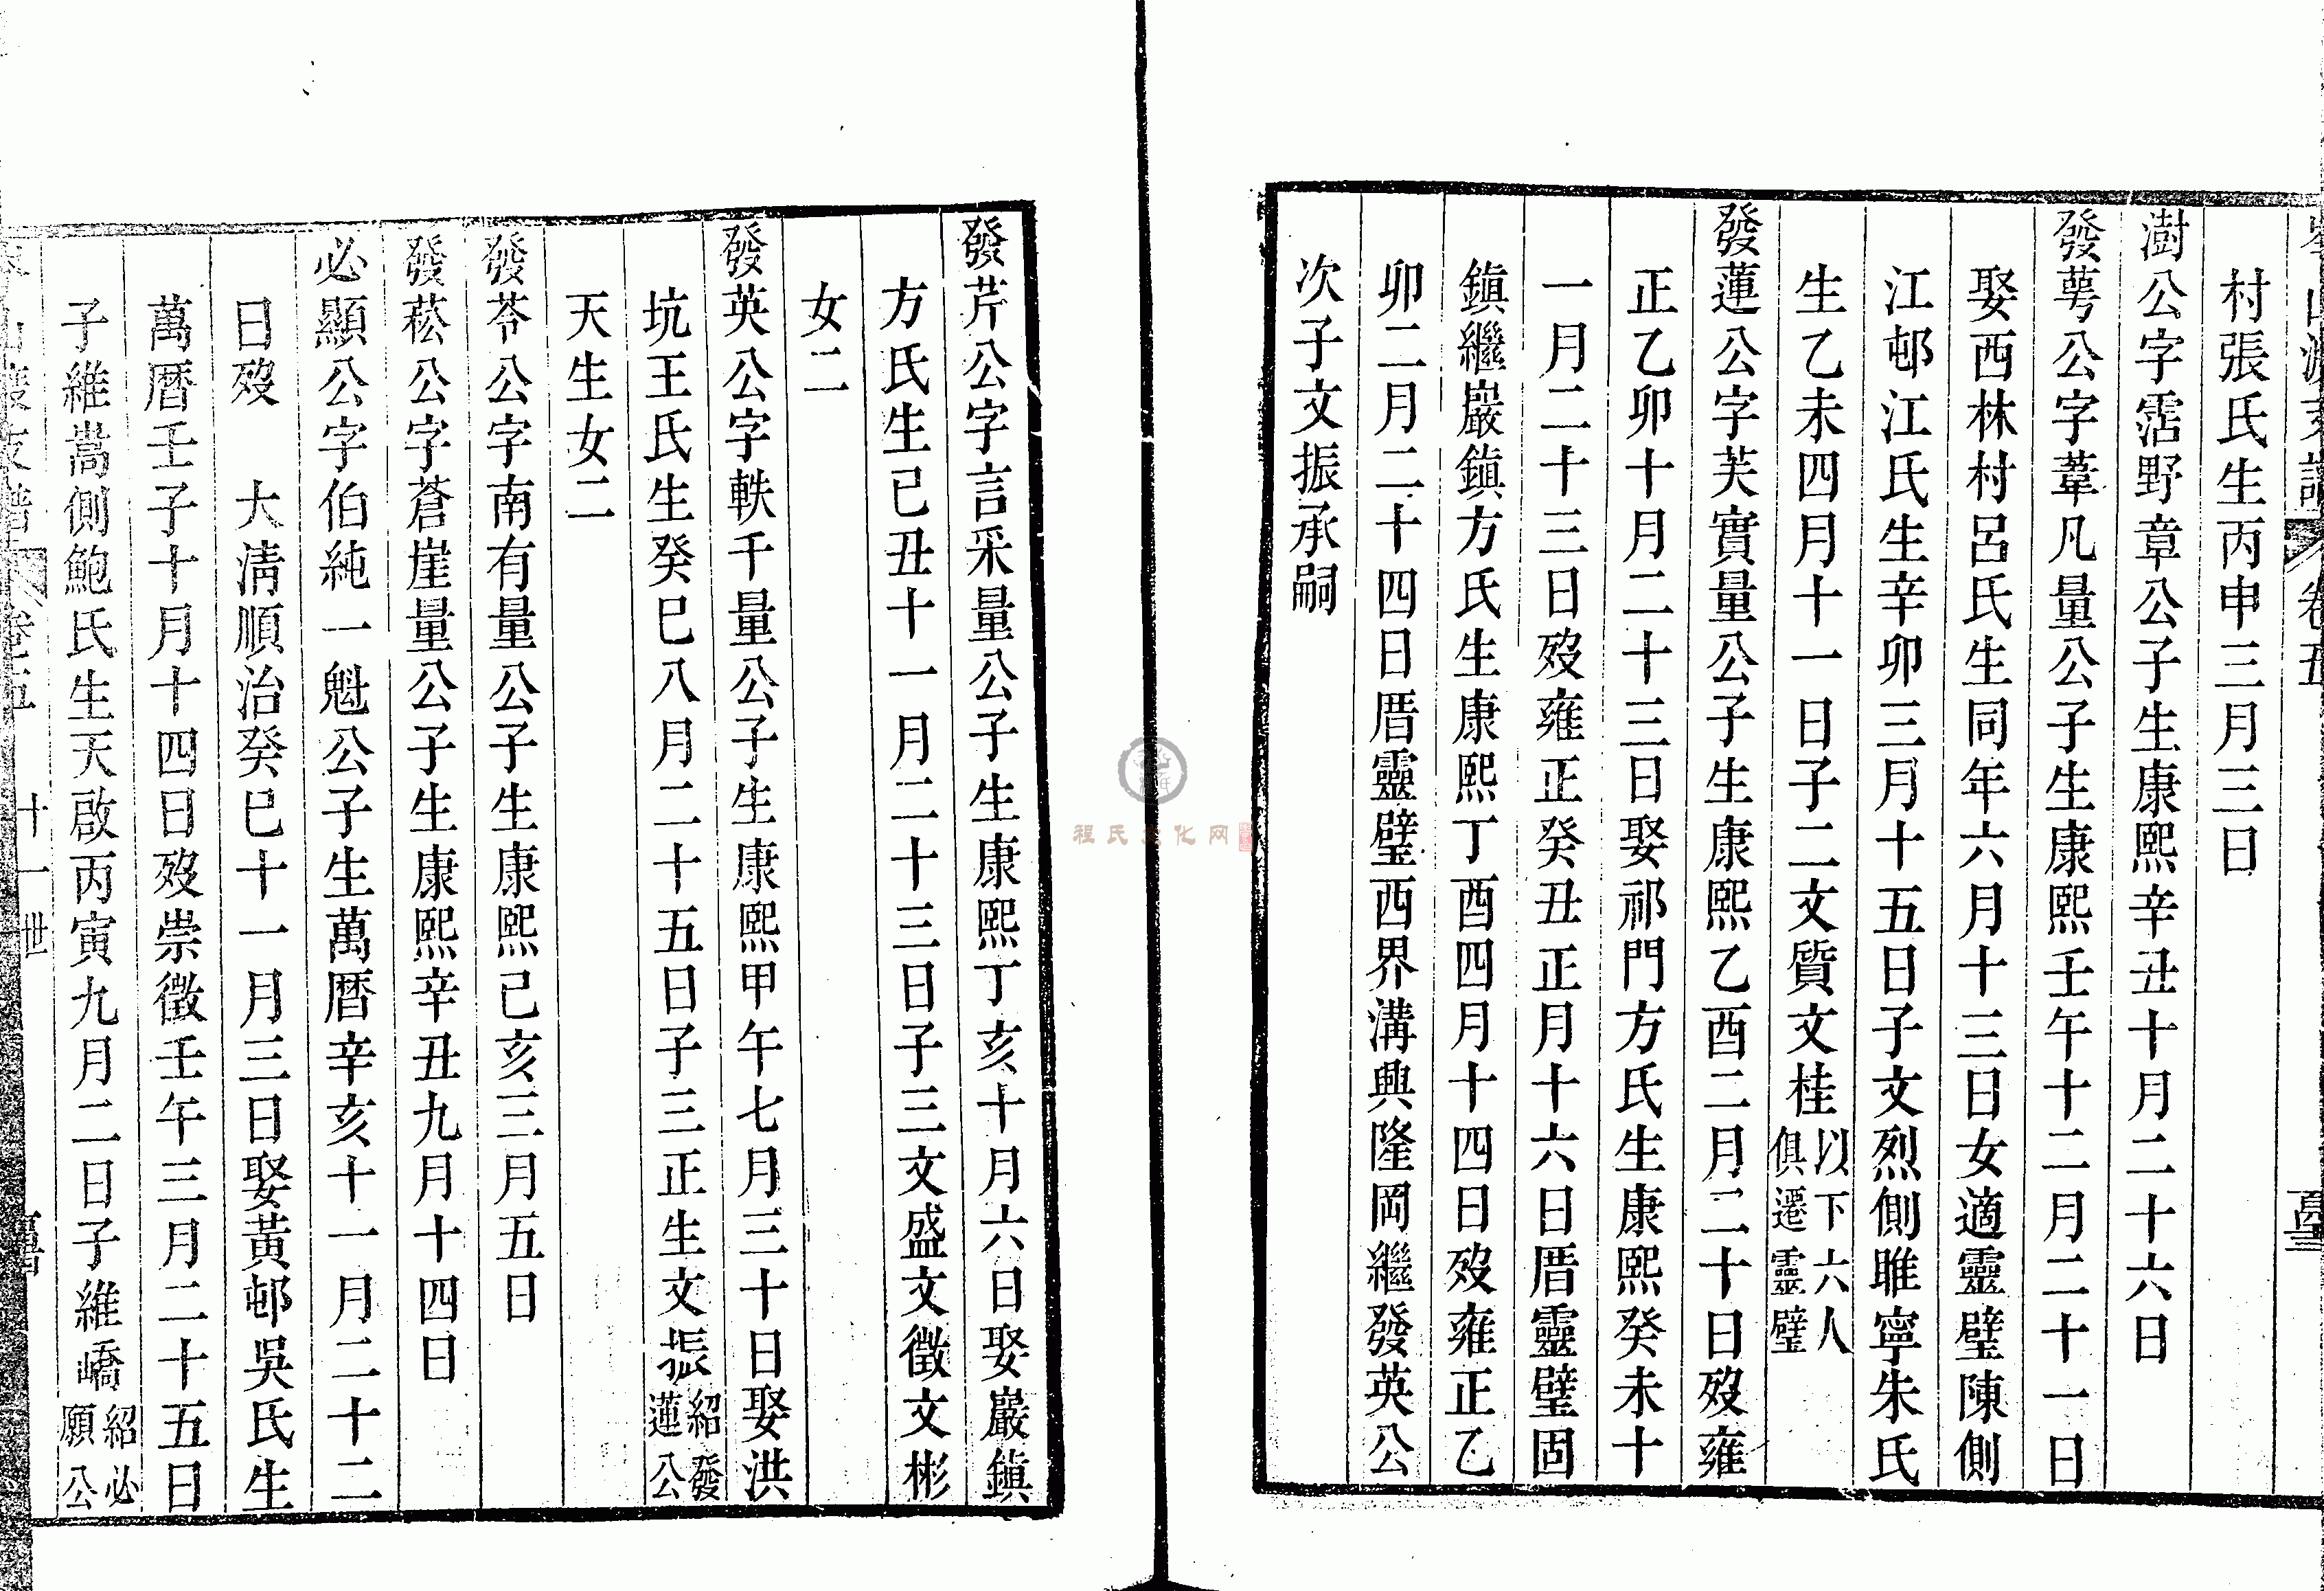 卷五
村張氏生丙申三月三日
澍公字霑野章公子生康熙辛丑十月二十六日
發萼公字葦凡量公子生康熙壬午十二月二十一日
娶西林村呂氏生同年六月十三日女適靈璧陳側
江邨江氏生辛卯三月十五日子文烈側睢寧朱氏
生乙未四月十一日子二文質文桂以下六人俱遷靈璧
發蓮公字芙實量公子生康熙乙酉二月二十日歿雍
正乙卯十月二十三日娶祁門方氏生康熙癸未十
一月二十三日歿雍正癸丑正月十六日厝靈璧固
鎮繼巖鎮方氏生康熙丁酉四月十四日歿雍正乙
卯二月二十四日厝靈璧西界溝興隆岡繼發英公
次子文振承嗣
發芹公字言采量公子生康熙丁亥十月六日娶巖鎮
方氏生己丑十一月二十三日子三文盛文徵文彬
女二
發英公字軼千量公子生康熙甲午七月三十日娶洪
坑王氏生癸巳八月二十五日子三正生文振紹發蓮公
天生女二
發苓公字南有量公子生康熙己亥三月五日
發菘公字蒼崖量公子生康熙辛丑九月十四日
必顯公字伯純一魁公子生萬曆辛亥十一月二十二
日歿 大清順治癸巳十一月三日娶黃邨吳氏生
萬曆壬子十月十四日歿崇徵壬午三月二十五日
子維嵩側鮑氏生天啟丙寅九月二日子維嶠紹必願公
卷五 十一世
程氏文化网